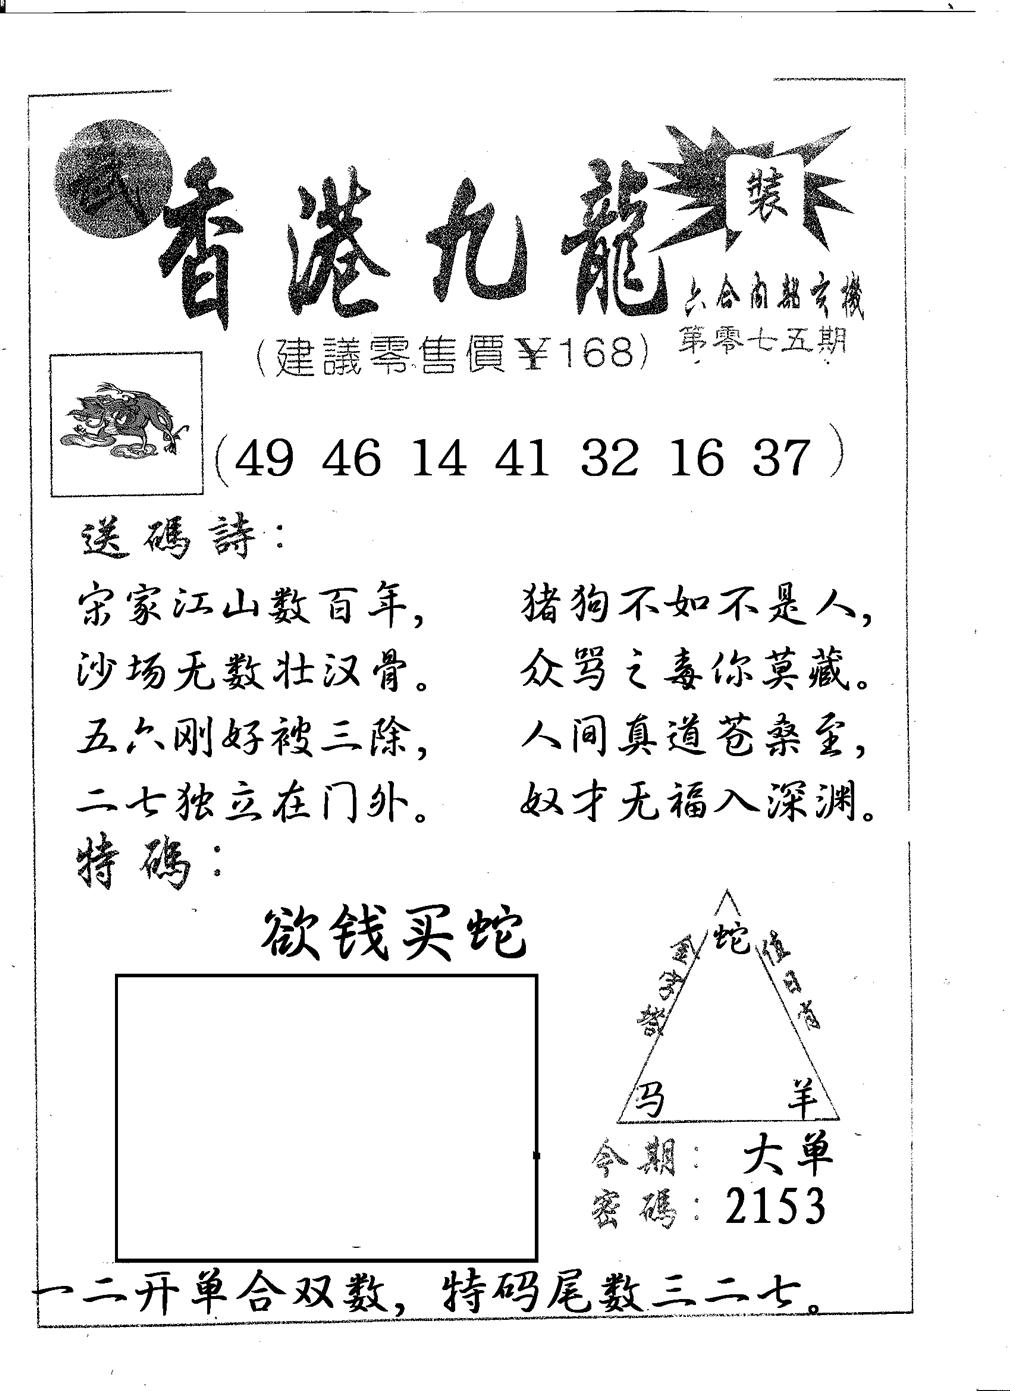 武
香港九龍
裝
六合内部玄機
第零七五期
(建議零售價¥168)
(49 46 14 41 32 16 37)
送碼詩：
宋家江山数百年，
沙场无数壮汉骨。
五六刚好被三除，
二七独立在门外。
猪狗不如不是人，
众骂之毒你莫藏。
人间真道苍桑至，
奴才无福入深渊。
特碼：
欲钱买蛇
金字塔
值日肖
蛇
马 羊
今期：大单
密碼：2153
一二开单合双数，特码尾数三二七。